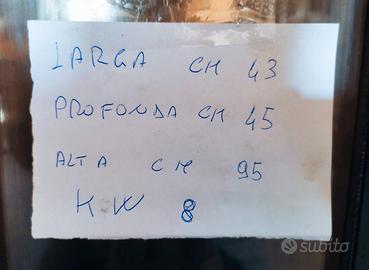 LARGA CM 43
PROFONDA CM 45
ALTA CM 95
KW 8
subito